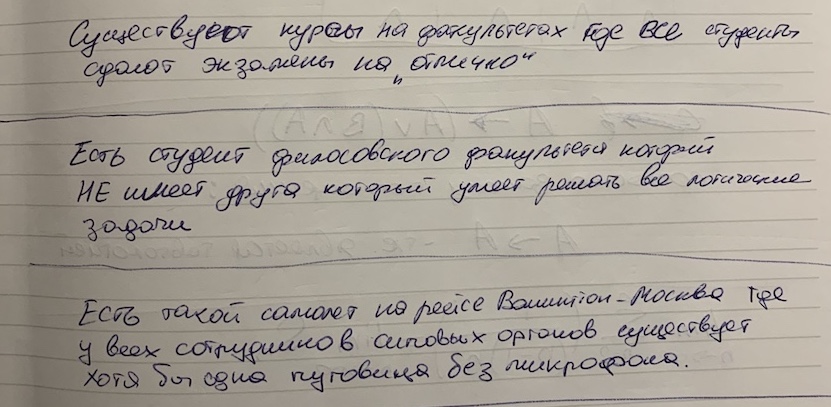 Существуют курсы на факультетах где все студенты
сдают экзамены на „отлично“
A → (A ∨ (B ∧ A))
Есть студент филосовского факультета который
НЕ имеет друга который умеет решать все логические
задачи
A → A
Есть такой самолет на рейсе Вашингтон-Москва где
у всех сотрудников силовых органов существует
хотя бы одна пуговица без микрофона.